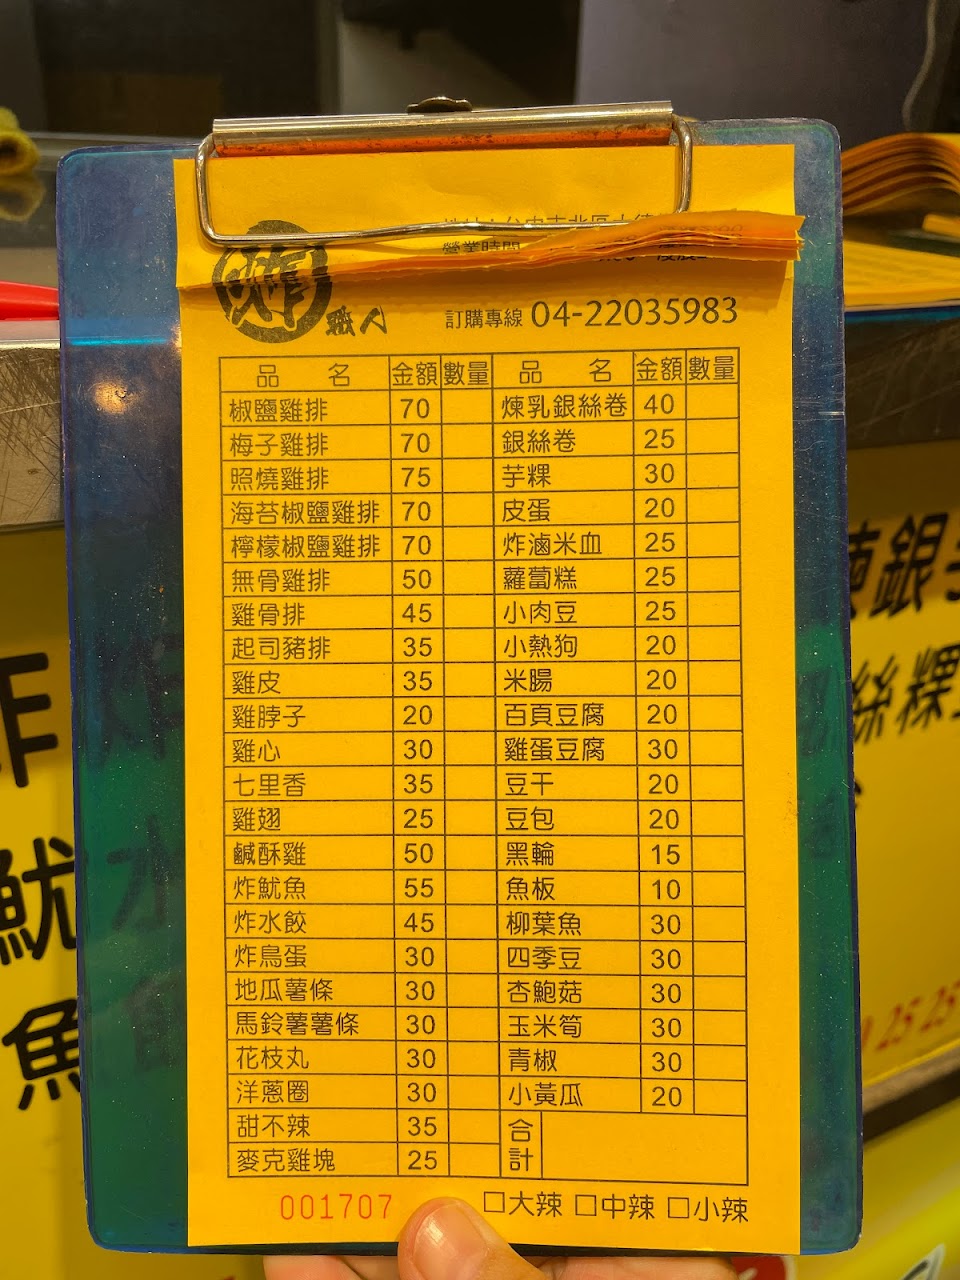 炸
職人
營業時間
訂購專線 04-22035983
品 名 金額 數量 品 名 金額 數量
椒鹽雞排 70 煉乳銀絲卷 40
梅子雞排 70 銀絲卷 25
照燒雞排 75 芋粿 30
海苔椒鹽雞排 70 皮蛋 20
檸檬椒鹽雞排 70 炸滷米血 25
無骨雞排 50 蘿蔔糕 25
雞骨排 45 小肉豆 25
起司豬排 35 小熱狗 20
雞皮 35 米腸 20
雞脖子 20 百頁豆腐 20
雞心 30 雞蛋豆腐 30
七里香 35 豆干 20
雞翅 25 豆包 20
鹹酥雞 50 黑輪 15
炸魷魚 55 魚板 10
炸水餃 45 柳葉魚 30
炸鳥蛋 30 四季豆 30
地瓜薯條 30 杏鮑菇 30
馬鈴薯薯條 30 玉米筍 30
花枝丸 30 青椒 30
洋蔥圈 30 小黃瓜 20
甜不辣 35 合計
麥克雞塊 25
001707 □大辣 □中辣 □小辣
炸
魷
魚
銀
絲 粿
25 25